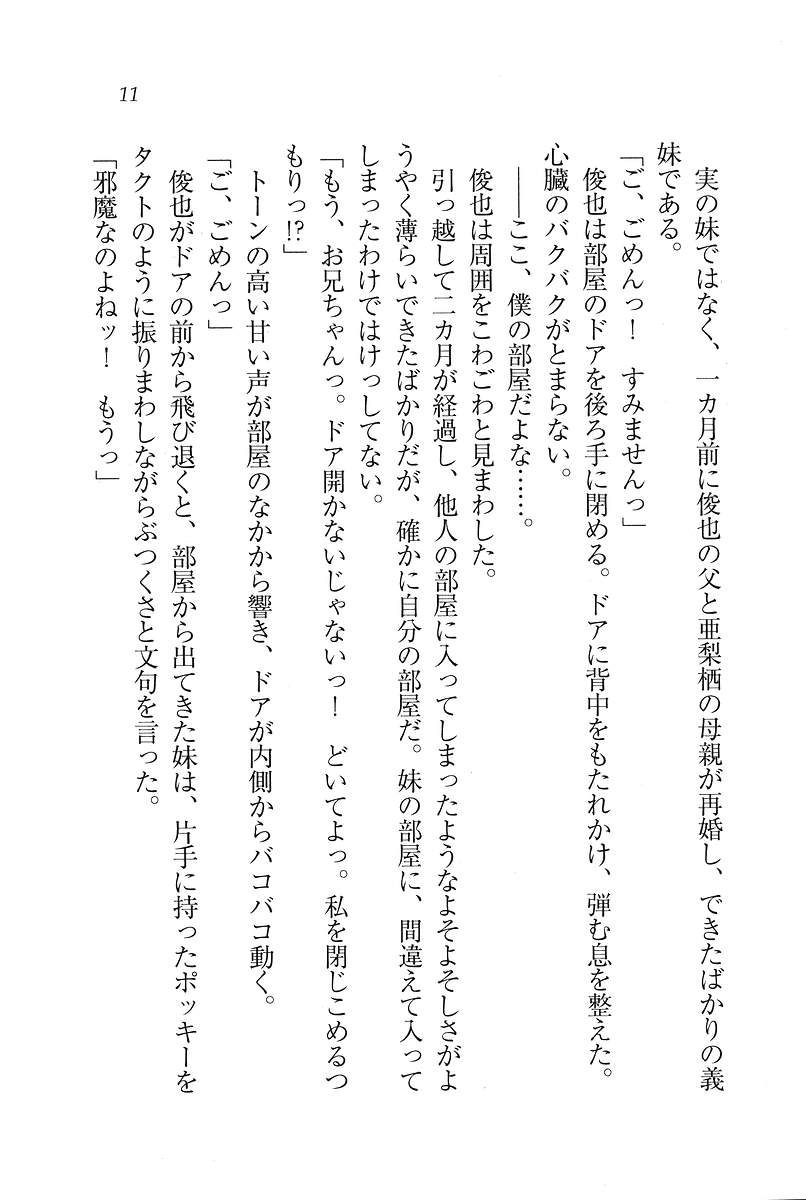 11
実の妹ではなく、一カ月前に俊也の父と亜梨栖の母親が再婚し、できたばかりの義
妹である。
「ご、ごめんっ！　すみませんっ」
俊也は部屋のドアを後ろ手に閉める。ドアに背中をもたれかけ、弾む息を整えた。
心臓のバクバクがとまらない。
――ここ、僕の部屋だよな……。
俊也は周囲をこわごわと見まわした。
引っ越して二カ月が経過し、他人の部屋に入ってしまったようなよそよそしさがよ
うやく薄らいできたばかりだが、確かに自分の部屋だ。妹の部屋に、間違えて入って
しまったわけではけっしてない。
「もう、お兄ちゃんっ。ドア開かないじゃないっ！　どいてよっ。私を閉じこめるつ
もりっ!?」
トーンの高い甘い声が部屋のなかから響き、ドアが内側からバコバコ動く。
「ご、ごめんっ」
俊也がドアの前から飛び退くと、部屋から出てきた妹は、片手に持ったポッキーを
タクトのように振りまわしながらぶつくさと文句を言った。
「邪魔なのよねッ！　もうっ」